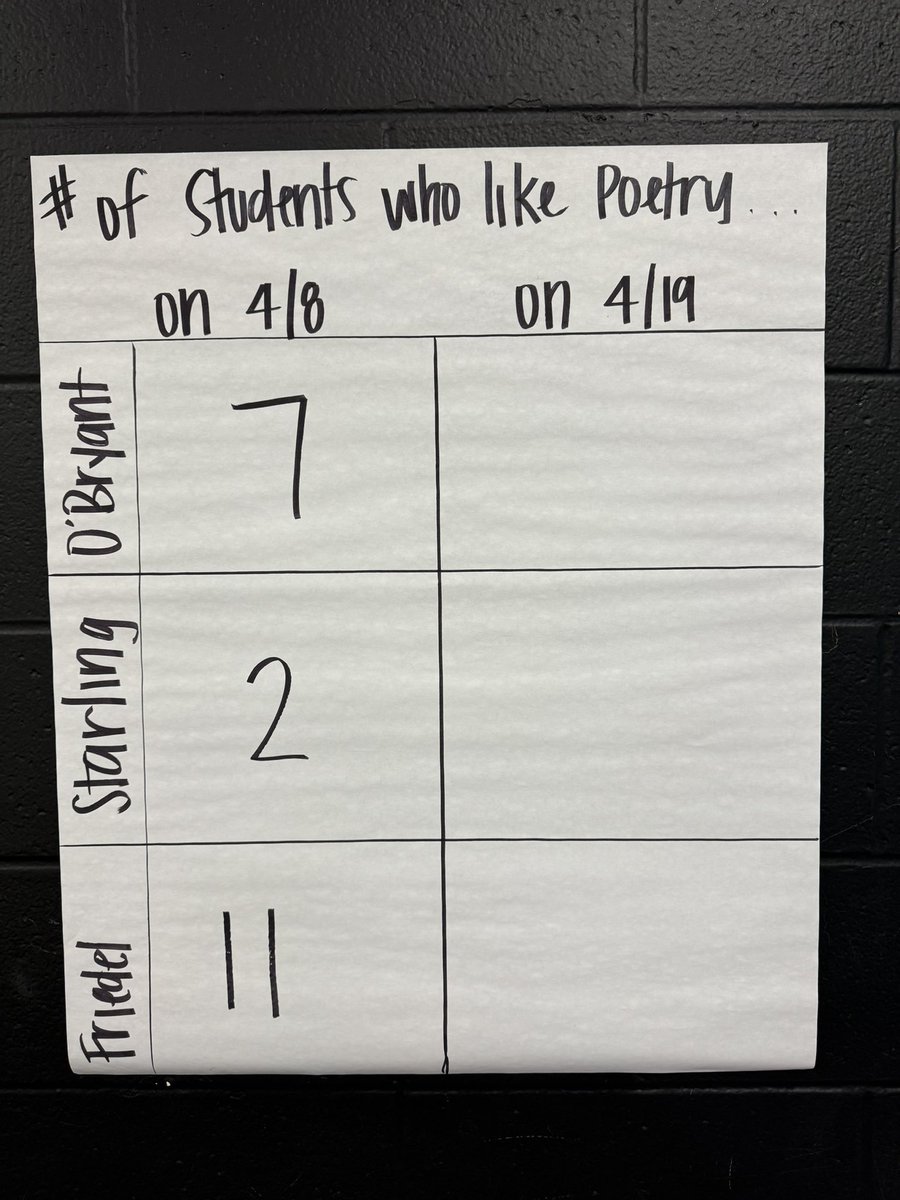 # of Students who like Poetry...
on 4/8 on 4/19
O'Bryant 7
Starling 2
Friedel 11